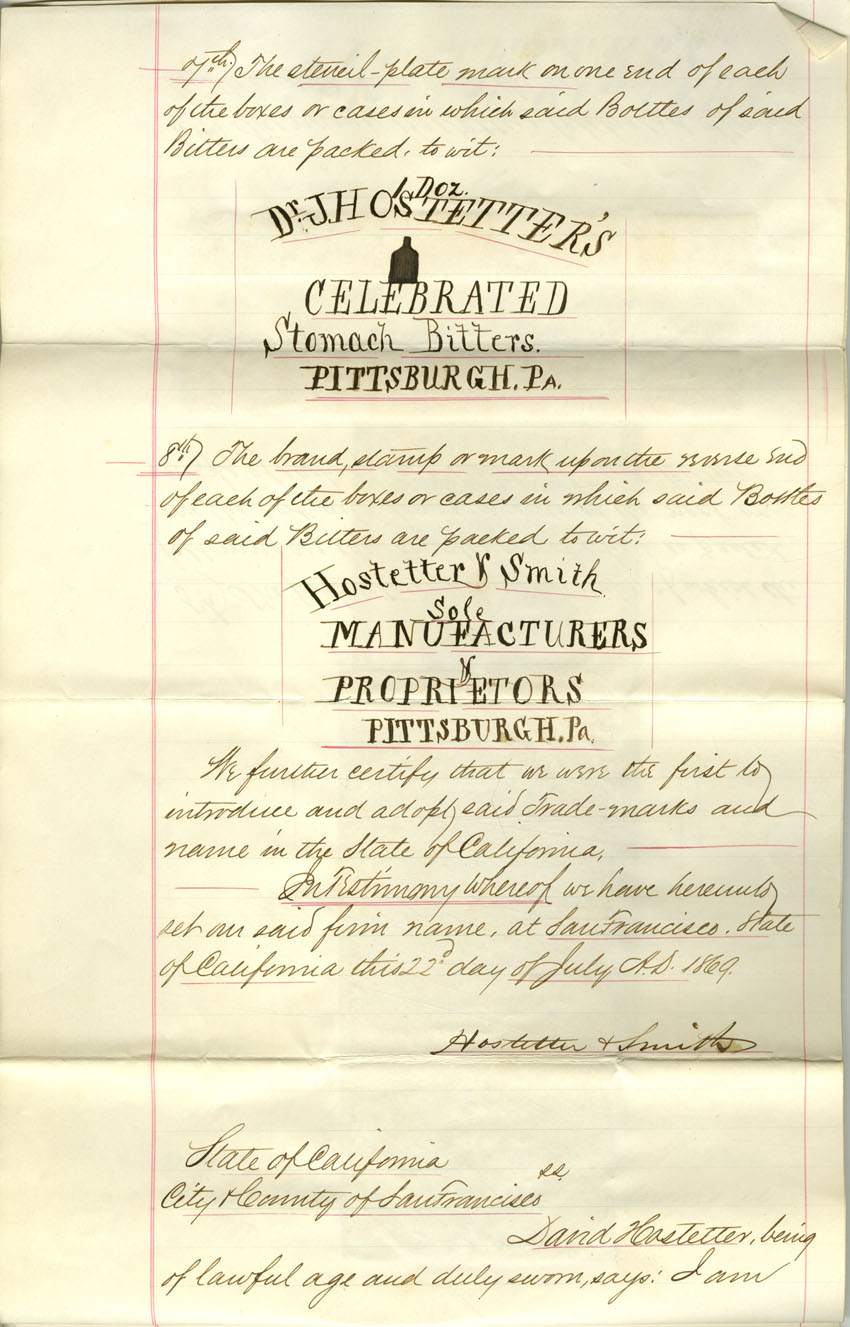 7th) The stencil-plate mark on one end of each
of the boxes or cases in which said Bottles of said
Bitters are packed. to wit:
1 Doz.
Dr. J. HOSTETTER'S
CELEBRATED
Stomach Bitters.
PITTSBURGH. PA.
8th) The brand, stamp or mark upon the reverse end
of each of the boxes or cases in which said Bottles
of said Bitters are packed to wit:
Hostetter & Smith
Sole
MANUFACTURERS
&
PROPRIETORS
PITTSBURGH. Pa.
We further certify that we were the first to
introduce and adopt said Trade-marks and
name in the State of California.
In Testimony Whereof we have hereunto
set our said firm name, at San Francisco. State
of California this 22d day of July A.D. 1869.
Hostetter & Smith
State of California
ss.
City & County of San Francisco
David Hostetter, being
of lawful age and duly sworn, says: I am